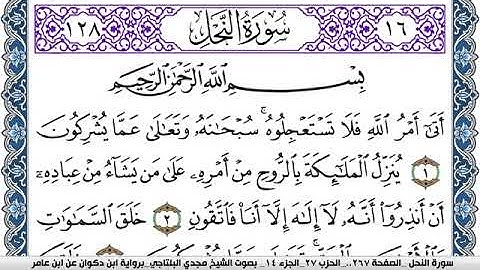 ١٢٨ سُورَةُ النَّحْلِ ١٦
بِسْمِ اللَّهِ الرَّحْمَٰنِ الرَّحِيمِ
أَتَىٰ أَمْرُ اللَّهِ فَلَا تَسْتَعْجِلُوهُ ۚ سُبْحَانَهُ وَتَعَالَىٰ عَمَّا يُشْرِكُونَ
١ يُنَزِّلُ الْمَلَٰئِكَةَ بِالرُّوحِ مِنْ أَمْرِهِ عَلَىٰ مَن يَشَاءُ مِنْ عِبَادِهِ
أَنْ أَنذِرُوا أَنَّهُ لَا إِلَٰهَ إِلَّا أَنَا فَاتَّقُونِ ٢ خَلَقَ السَّمَٰوَٰتِ
سورة النحل _الصفحة ٢٦٧،_ الحزب ٢٧_الجزء ١٤_ بصوت الشيخ مجدي البلتاجي_برواية ابن ذكوان عن ابن عامر